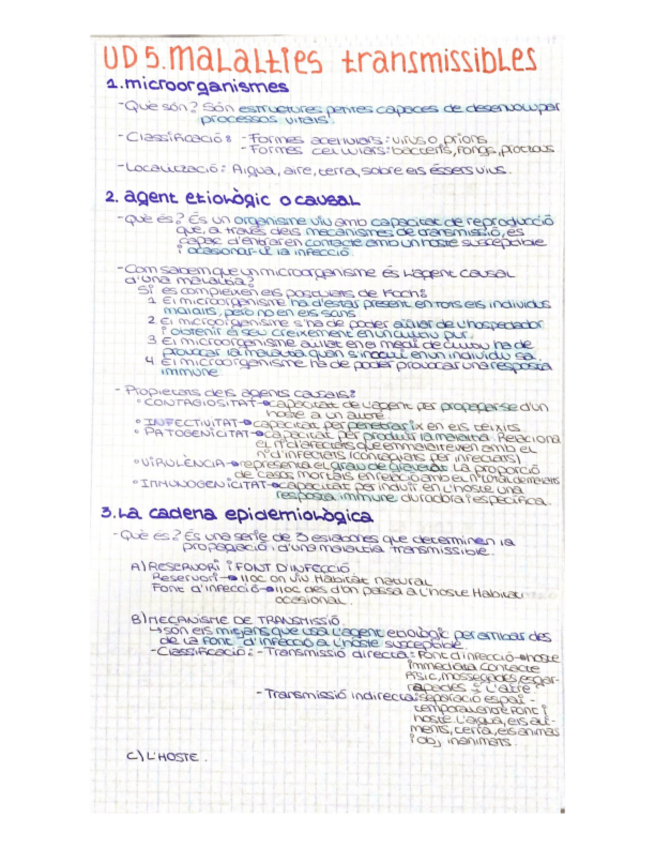 UD 5. Malalties transmissibles
1. microorganismes
- Què són? Són estructures petites capaces de desenvolupar
processos vitals.
- Classificació: - Formes acel·lulars: virus o prions
- Formes cel·lulars: bacteris, fongs, protous
- Localització: Aigua, aire, terra, sobre els éssers vius.
2. agent etiològic o causal
- què és? És un organisme viu amb capacitat de reproducció
que, a través dels mecanismes de transmissió, és
capaç d'entrar en contacte amb un hoste susceptible
i ocasionar-li la infecció.
- Com sabem que un microorganisme és l'agent causal
d'una malaltia?
Si es compleixen els postulats de Koch:
1 El microorganisme ha d'estar present en tots els individus
malalts, però no en els sans
2 El microorganisme s'ha de poder aïllar de l'hospedador
i obtenir el seu creixement en un cultiu pur.
3 El microorganisme aïllat en el medi de cultiu ha de
provocar la malaltia quan s'inocul en un individu sa.
4 El microorganisme ha de poder provocar una resposta
immune
- Propietats dels agents causals:
• CONTAGIOSITAT → capacitat de l'agent per propagar-se d'un
hoste a un altre
• INFECTIVITAT → capacitat per penetrar ix en els teixits.
• PATOGENICITAT → capacitat per produir la malaltia. Relaciona
el nº d'afectats que emmalalteixen amb el
nº d'infectats (contagiats per infectats)
• VIRULÈNCIA → representa el grau de gravetat. La proporció
de casos mortals en relació amb el nº total de malalts
• IMMUNOGENICITAT → capacitat per induir en l'hoste una
resposta immune duradora i específica.
3. La cadena epidemiològica
- Què és? És una sèrie de 3 eslabores que determinen la
propagació d'una malaltia transmissible.
A) RESERVORI I FONT D'INFECCIÓ
Reservori → lloc on viu Hàbitat natural
Font d'infecció → lloc des d'on passa a l'hoste Hàbitat
ocasional.
B) MECANISME DE TRANSMISSIÓ.
↳ són els mitjans que usa l'agent etiològic per arribar des
de la font d'infecció a l'hoste susceptible
- Classificació: - Transmissió directa: Font d'infecció → hoste
immediata contacte
físic, mossegades, esgar-
rapades i l'aire.
- Transmissió indirecta: separació espai-
temporal entre font i
hoste. L'aigua, els ali-
ments, terra, els animals
i obj inanimats.
C) L'HOSTE.